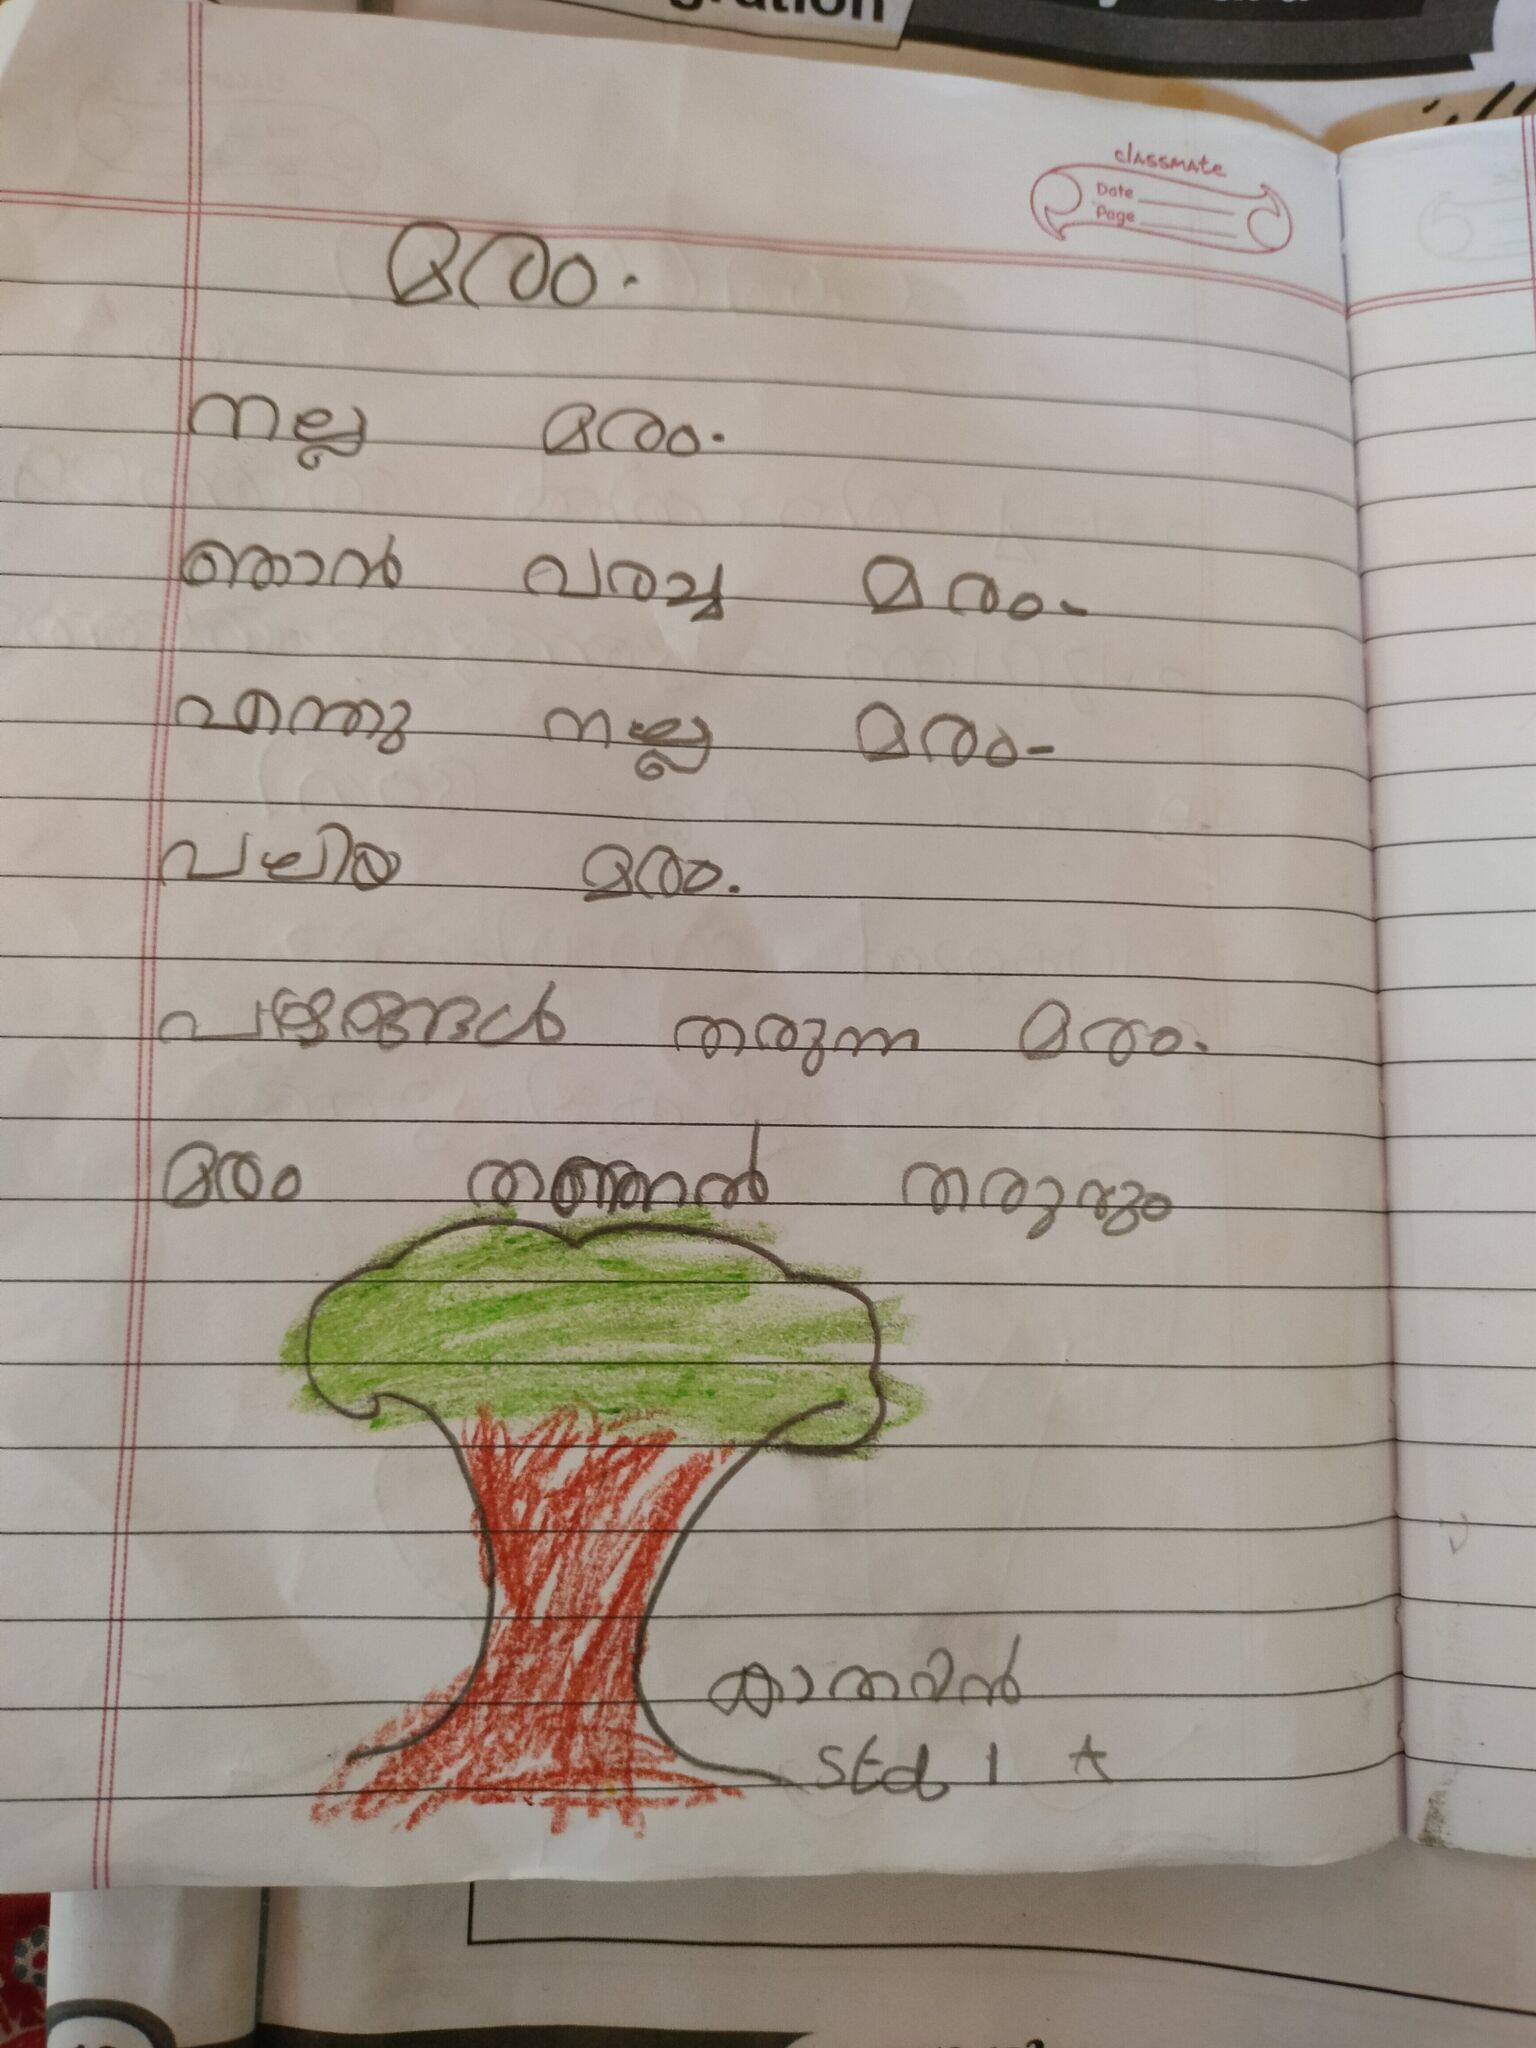 gration
classmate
Date
Page
മരം.
നല്ല മരം.
ഞാൻ വരച്ച മരം-
എന്തു നല്ല മരം-
വലിയ മരം.
പഴങ്ങൾ തരുന്ന മരം.
മരം തണൽ തരും
കാതറിൻ
Std 1 A